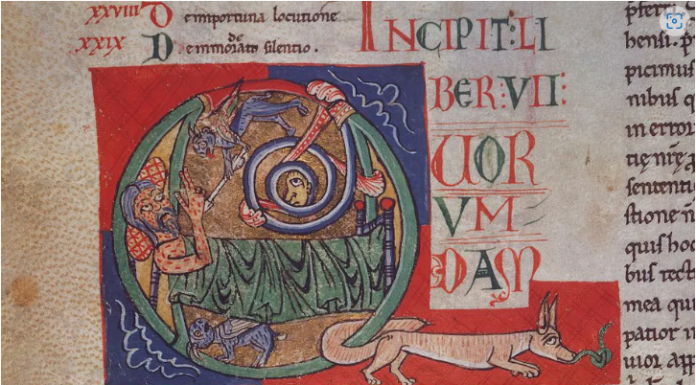 xxviii De importuna locutione
xxix De immodato silentio.
INCIPIT: LI
BER: VII:
QUOR
VM
DAM
hensi. p
picimus
nibus q
in error
sententi
stione n
quis hoc
bus rect
mea qu
patior u
uior app